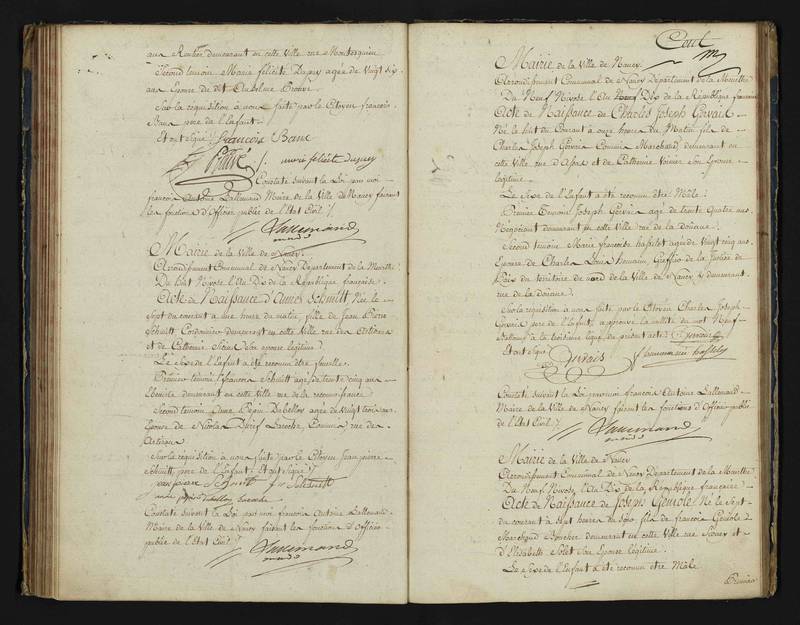 aux Rentier demeurant en cette Ville rue Montesquieu
Second temoin Marie félicité Dupuy agée de Vingt Six
ans Epouse de dit
Sur la requisition a nous faite par le Citoyen françois
Banc pere de l'Enfant
Et ont signé françois Banc
marie félicité dupuy
Constaté suivant la Loi par moi
françois Antoine Lallemand Maire de la Ville de Nancy faisant
les fonctions d'Officier public de l'Etat Civil
Lallemand
Mairie de la Ville de Nancy
Arrondissement Communal de Nancy Département de la Meurthe
Du huit Nivose l'An Dix de la République française
Acte de Naissance d'Aimée Schmitt Née le
Sept du courant à une heure du matin, fille de Jean Pierre
Schmitt, Cordonnier demeurant en cette Ville rue des Artisans
et de Catherine son épouse légitime
Le Sexe de l'Enfant a été reconnu être femelle
Premier témoin françois Schmitt agé de trente cinq ans
Ebeniste demeurant en cette Ville rue de la reconnaissance
Second temoin agée de vingt trois ans
Epouse de Nicolas rue des
Artisans
Sur la requisition à nous faite par le Citoyen Jean pierre
Schmitt, pere de l'Enfant Et ont signé
jean pierre Schmitt Schmitt
Constaté suivant la Loi par moi françois Antoine Lallemand
Maire de la Ville de Nancy faisant les fonctions d'Officier
public de l'Etat Civil
Lallemand
Cent
Mairie de la Ville de Nancy
Arrondissement Communal de Nancy Département de la Meurthe
Du Neuf Nivose l'An Neuf Dix de la République française
Acte de Naissance de Charles Joseph Gervais
Né le huit du Courant à onze heures du Matin fils de
Charles Joseph Gervais Commis Marchand demeurant en
cette Ville rue et de Catherine son Epouse
légitime
Le Sexe de l'Enfant a été reconnu être Mâle
Premier Temoin Joseph Gervais agé de trente quatre ans
Négociant demeurant en cette Ville rue de la douane
Second temoin Marie françoise hasselot agée de Vingt cinq ans
Epouse de Charles Louis Greffier de la Justice de
Paix du territoire du nord de la Ville de Nancy y demeurant
rue de la Douane
Sur la requisition à nous faite par le Citoyen Charles Joseph
Gervais pere de l'Enfant, approuvé la nullité du mot Neuf
Batonné à la troisieme ligne du présent acte
Et ont signé
Gervais
Constaté suivant la Loi par moi françois Antoine Lallemand
Maire de la Ville de Nancy faisant les fonctions d'Officier public
de l'Etat Civil
Lallemand
Mairie de la Ville de Nancy
Arrondissement Communal de Nancy Département de la Meurthe
Du Neuf Nivose l'An Dix de la République française
Acte de Naissance de Joseph Gemole Né le Sept
du courant à Sept heures du soir fils de françois Gemole
Marchand demeurant en cette Ville rue et
d'Elisabeth Solet Son Epouse légitime
Le Sexe de l'Enfant a été reconnu être Mâle
Premier